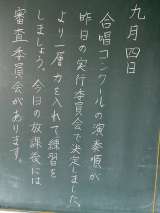 九月四日
合唱コンクールの演奏順が、
昨日の実行委員会で決定しました。
より一層力を入れて練習を
しましょう。今日の放課後には
審査委員会があります。